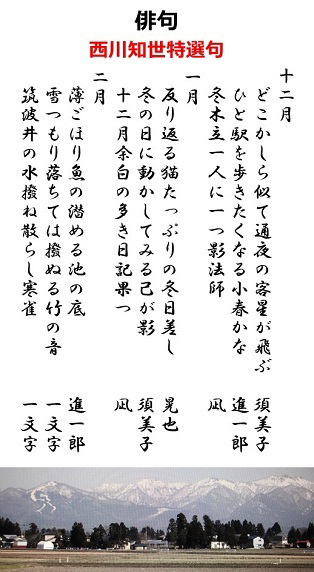 俳句
西川知世特選句
十二月
どこかしら似て通夜の客星が飛ぶ 須美子
ひと駅を歩きたくなる小春かな 進一郎
冬木立一人に一つ影法師 凩
一月
反り返る猫たっぷりの冬日差し 晃也
冬の日に動かしてみる己が影 須美子
十二月余白の多き日記果つ 凩
二月
薄ごほり魚の潜める池の底 進一郎
雪つもり落ちては撥ぬる竹の音 一文字
筑波井の水撥ね散らし寒雀 一文字